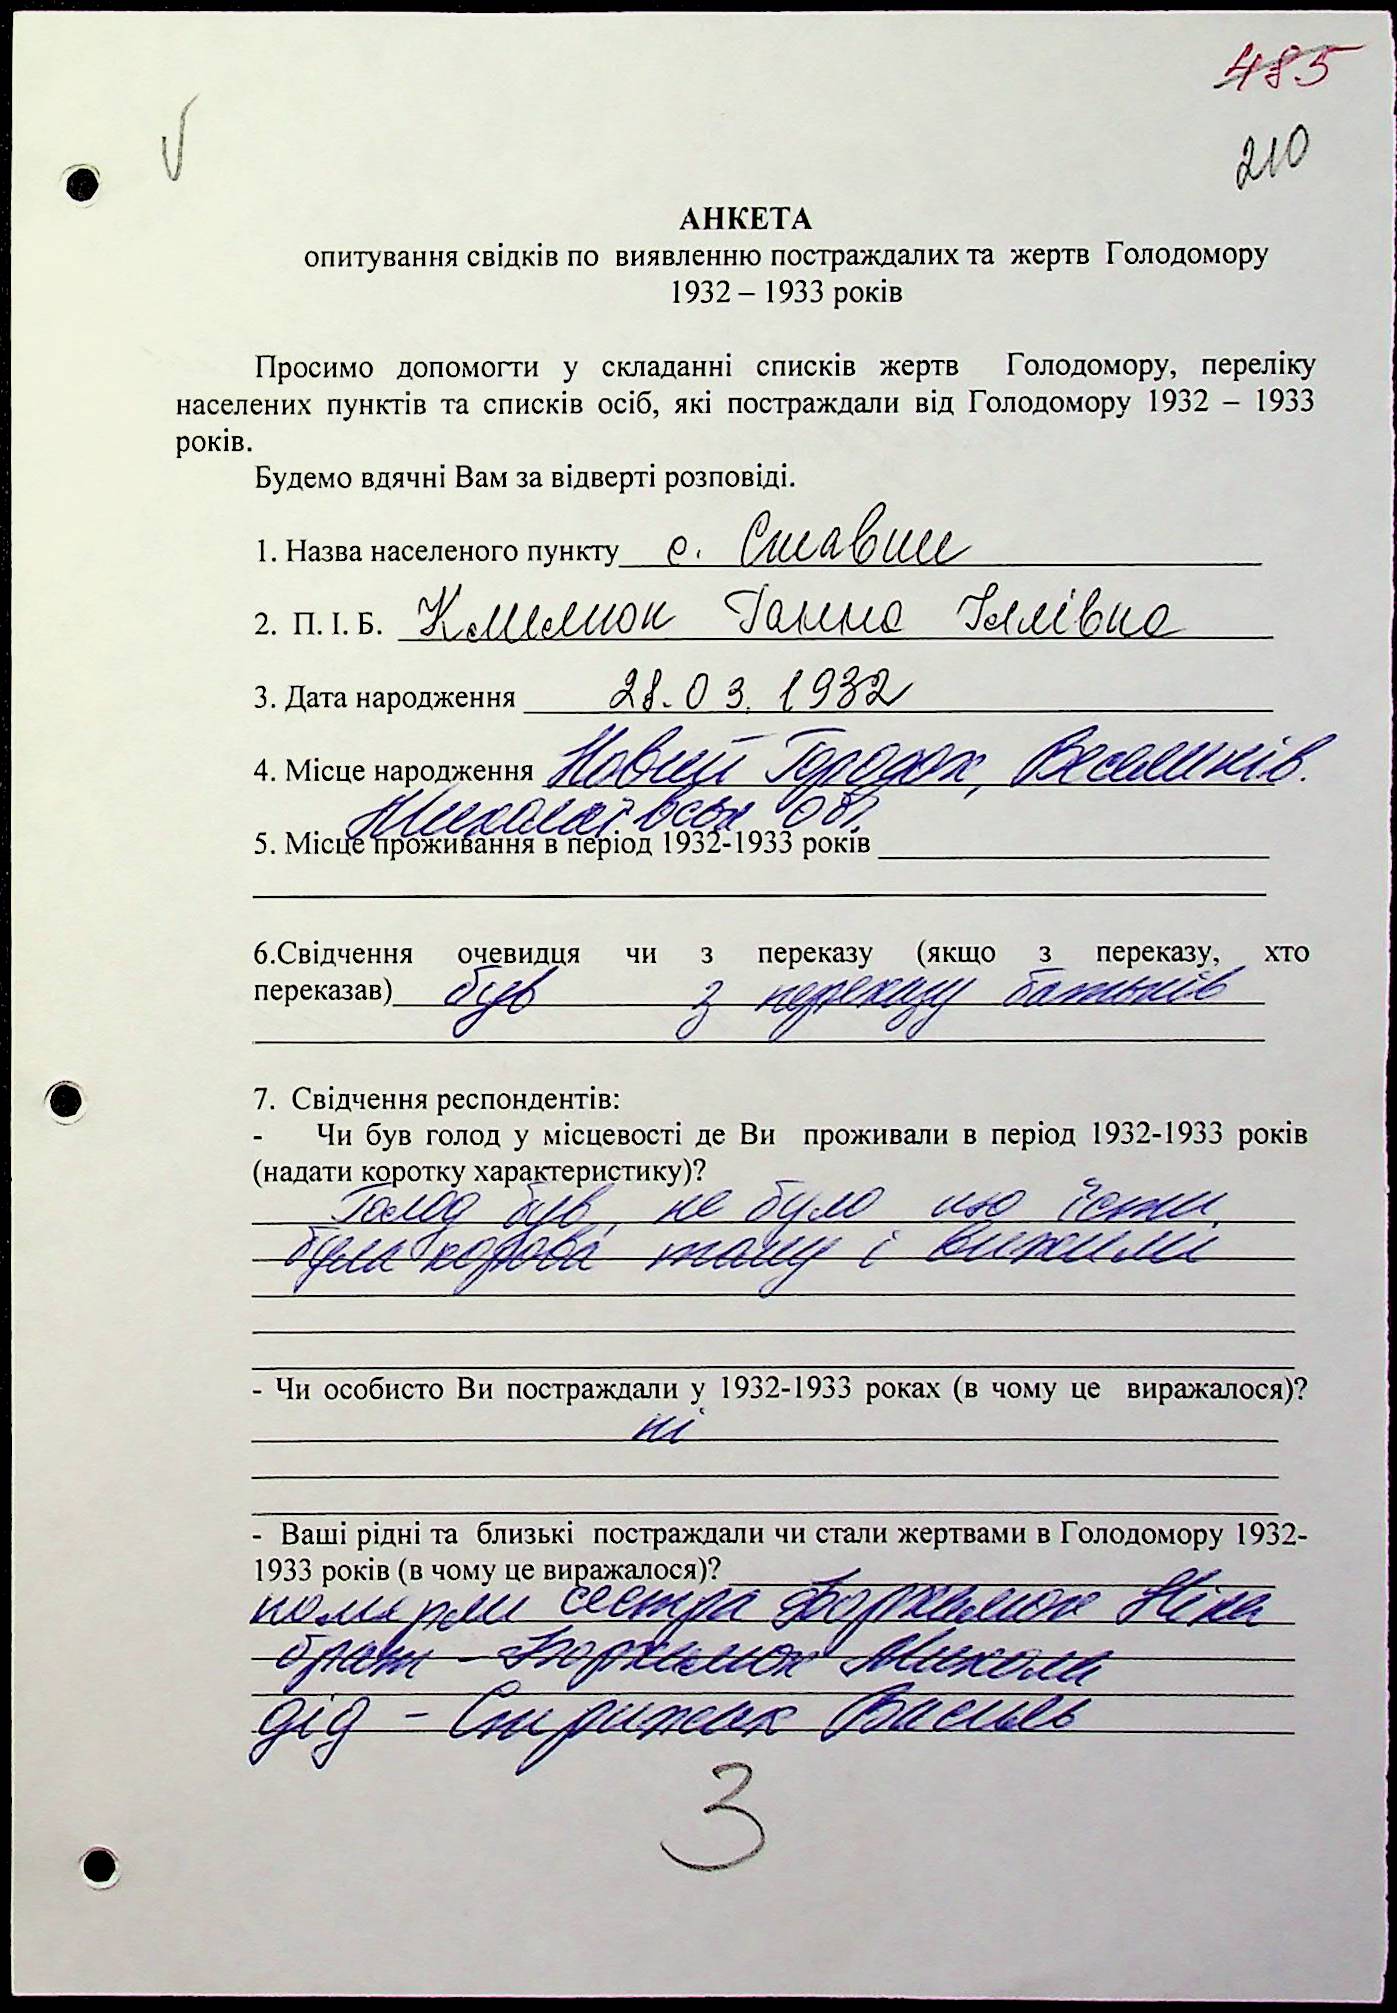 485
210
АНКЕТА
опитування свідків по виявленню постраждалих та жертв Голодомору
1932 – 1933 років
Просимо допомогти у складанні списків жертв Голодомору, переліку
населених пунктів та списків осіб, які постраждали від Голодомору 1932 – 1933
років.
Будемо вдячні Вам за відверті розповіді.
1. Назва населеного пункту с. Ставки
2. П. І. Б. Климнюк Ганна Іллівна
3. Дата народження 28.03.1932
4. Місце народження Новий Городок,
Миколаївськ обл
5. Місце проживання в період 1932-1933 років
6.Свідчення очевидця чи з переказу (якщо з переказу, хто
переказав) був з переказу батьків
7. Свідчення респондентів:
- Чи був голод у місцевості де Ви проживали в період 1932-1933 років
(надати коротку характеристику)?
Голод був, не було що їсти
була корова тому і вижили
- Чи особисто Ви постраждали у 1932-1933 роках (в чому це виражалося)?
ні
- Ваші рідні та близькі постраждали чи стали жертвами в Голодомору 1932-
1933 років (в чому це виражалося)?
померли сестра Ніна
брат - Микола
дід - Стрижак Василь
3